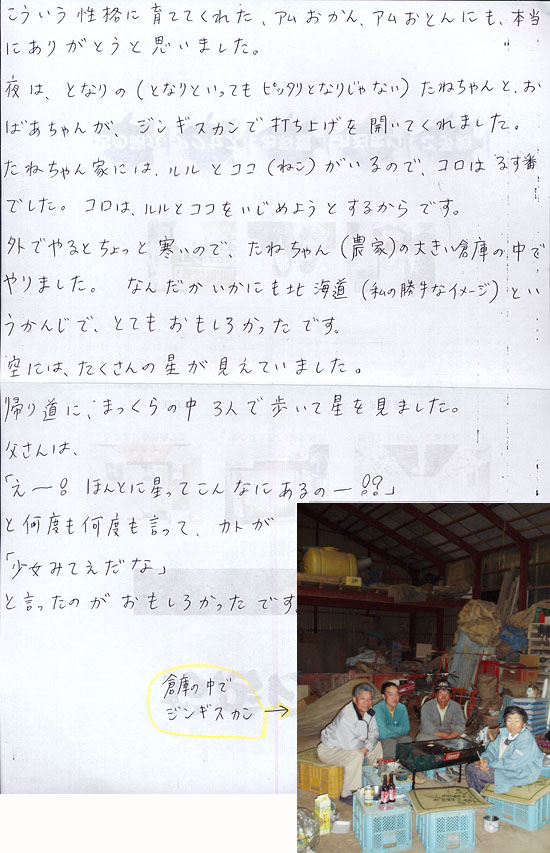 こういう性格に育ててくれた、アムおかん、アムおとんにも、本当
にありがとうと思いました。
夜は、となりの(となりといってもピッタリとなりじゃない)たねちゃんと、お
ばあちゃんが、ジンギスカンで打ち上げを開いてくれました。
たねちゃん家には、ルルとココ(ねこ)がいるので、コロはるす番
でした。コロは、ルルとココをいじめようとするからです。
外でやるとちょっと寒いので、たねちゃん(農家)の大きい倉庫の中で
やりました。 なんだかいかにも北海道(私の勝手なイメージ)とい
うかんじで、とてもおもしろかったです。
空には、たくさんの星が見えていました。
帰り道に、まっくらの中3人で歩いて星を見ました。
父さんは、
「えー!ほんとに星ってこんなにあるのー!??」
と何度も何度も言って、カトが
「少女みてえだな」
と言ったのがおもしろかったです。
倉庫の中で
ジンギスカン→